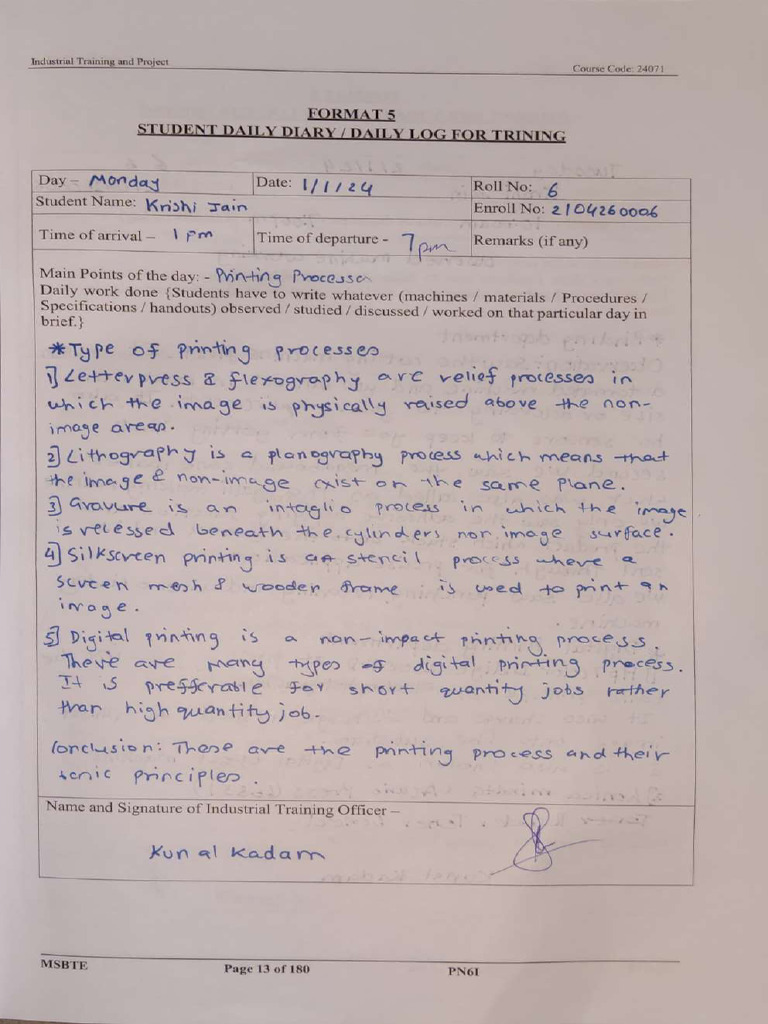 Industrial Training and Project Course Code: 24071
FORMAT 5
STUDENT DAILY DIARY / DAILY LOG FOR TRINING
Day – Monday Date: 1/1/24 Roll No: 6
Student Name: Krishi Jain Enroll No: 2104260006
Time of arrival – 1 pm Time of departure - 7pm Remarks (if any)
Main Points of the day: - Printing Processes
Daily work done {Students have to write whatever (machines / materials / Procedures /
Specifications / handouts) observed / studied / discussed / worked on that particular day in
brief.}
* Type of printing processes
1] Letterpress & flexography are relief processes in
which the image is physically raised above the non-
image areas.
2] Lithography is a planography process which means that
the image & non-image exist on the same plane.
3] Gravure is an intaglio process in which the image
is recessed beneath the cylinders non image surface.
4] Silkscreen printing is a stencil process where a
screen mesh & wooden frame is used to print an
image.
5] Digital printing is a non-impact printing process.
There are many types of digital printing process.
It is prefferable for short quantity jobs rather
than high quantity job.
Conclusion: These are the printing process and their
principles.
Name and Signature of Industrial Training Officer –
Kunal Kadam
MSBTE Page 13 of 180 PN6I